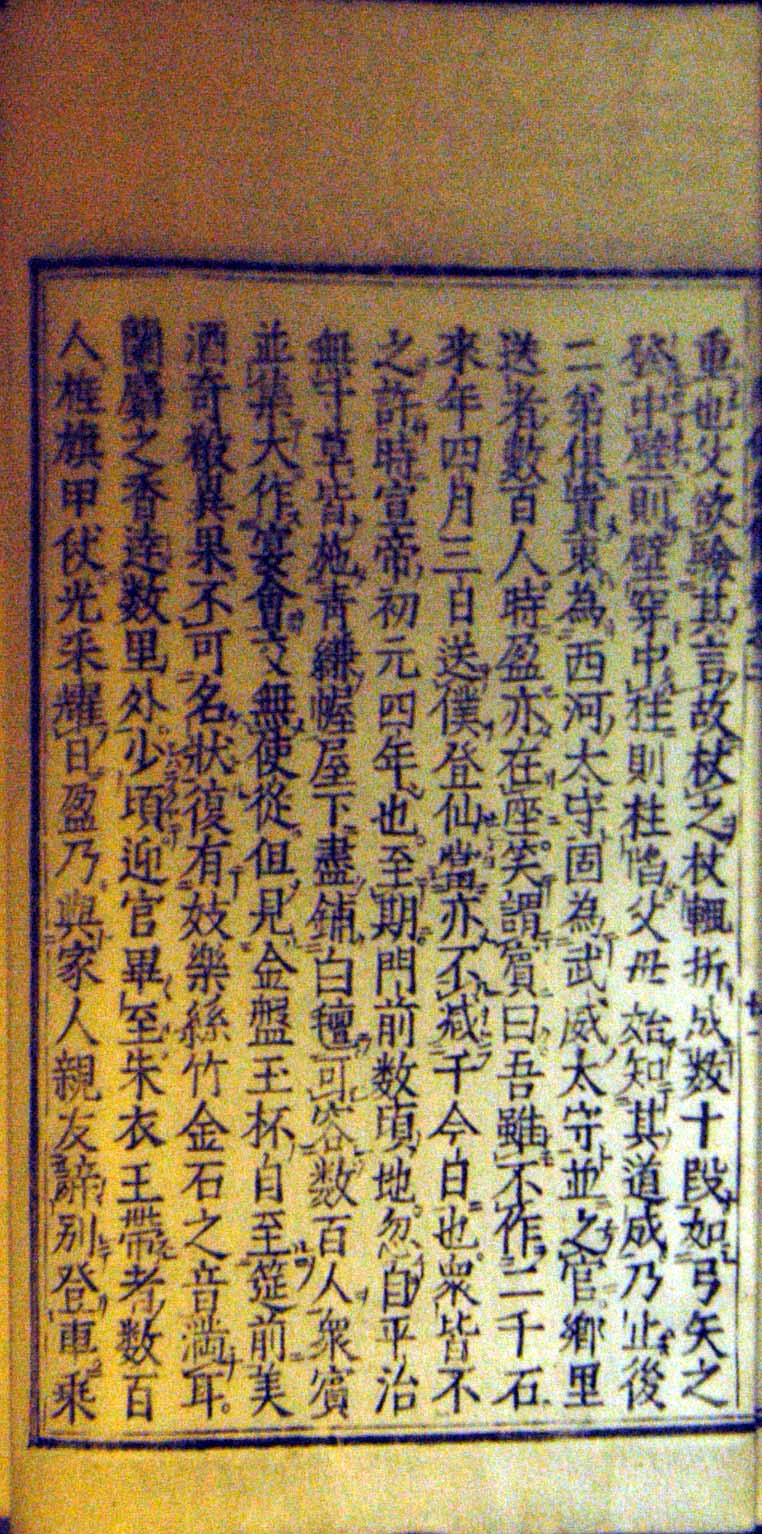 重也父欲驗其言故杖之杖輒折成数十段如弓矢之
發中壁則壁穿中柱則柱陷父毋始知其道成乃止後
二弟俱貴東為西河太守固為武威太守並之官。鄉里
送者數百人。時盈亦在座笑謂賓曰吾雖不作二千石
來年四月三日送僕登仙當亦不减千今日也。衆皆不
之許時宣帝初元四年也。至期。門前数頃地。忽自平治
無寸草皆施青縑幄屋下盡鋪白氊可容数百人衆賓
並集大作宴會文無使從但見金盤玉杯自至筵前美
酒奇殽異果不可名狀復有妓樂絲竹金石之音満耳。
蘭麝之香達数里外。少頃迎官畢至朱衣王帶者数百
人旌旗甲仗光采耀日盈乃與家人親友辭别登車乘